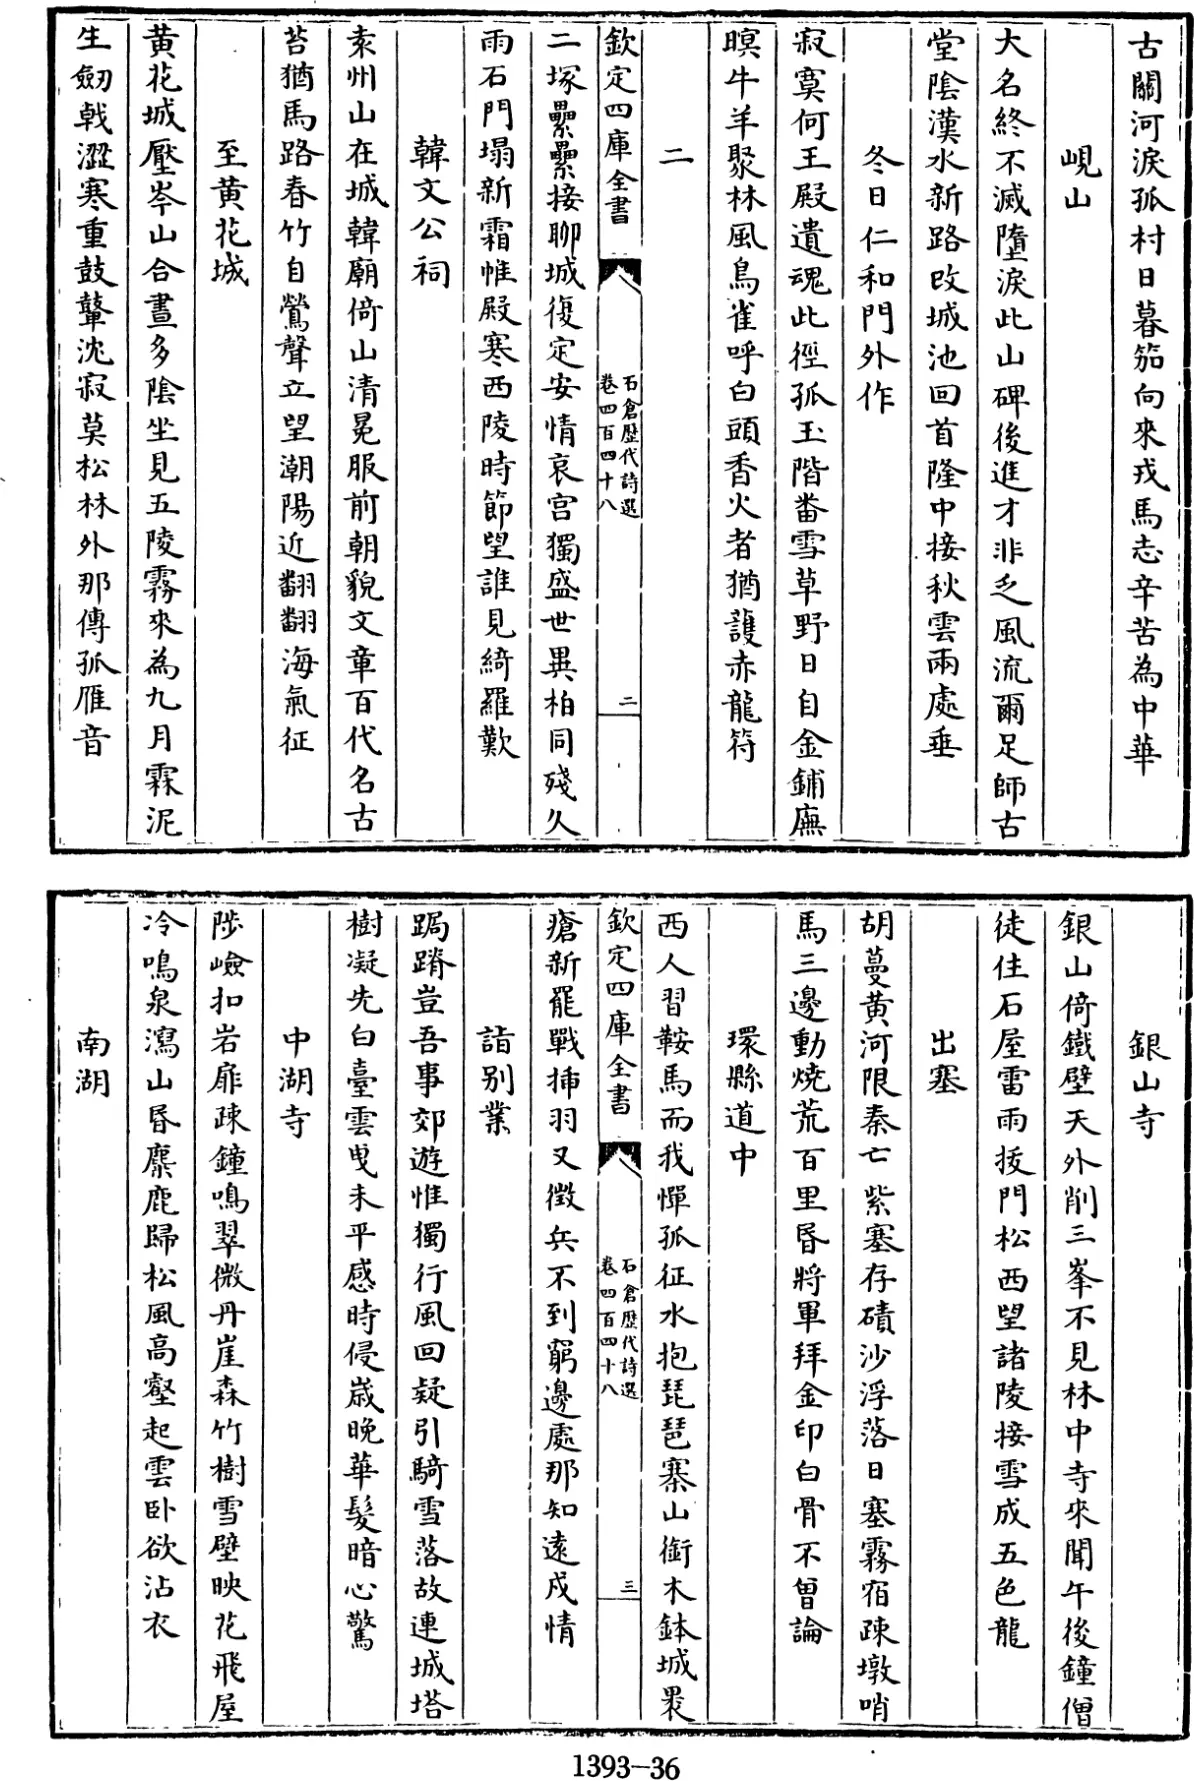 古關河淚孤村日暮笳向來戎馬志辛苦為中華
峴山
大名終不滅墮淚此山碑後進才非乏風流爾足師古
堂陰漢水新路改城池回首隆中接秋雲兩處垂
冬日仁和門外作
寂寞何王殿遺魂此徑孤玉階番雪草野日自金鋪廡
暝牛羊聚林風鳥雀呼白頭香火者猶護赤龍符
二
欽定四庫全書
石倉歷代詩選
卷四百四十八
二
二塚纍纍接聊城復定安情哀宫獨盛世異柏同殘久
雨石門塌新霜帷殿寒西陵時節望誰見綺羅歎
韓文公祠
袁州山在城韓廟倚山清冕服前朝貌文章百代名古
苔猶馬路春竹自鶯聲立望潮陽近翻翻海氣征
至黄花城
黄花城壓岑山合晝多陰坐見五陵霧來為九月霖泥
生劒戟澀寒重鼓鼙沈寂莫松林外那傳孤雁音
銀山寺
銀山倚鐵壁天外削三峯不見林中寺來聞午後鐘僧
徒住石屋雷雨拔門松西望諸陵接雪成五色龍
出塞
胡蔓黄河限秦亡紫塞存磧沙浮落日塞霧宿疎墩哨
馬三邊動燒荒百里昏將軍拜金印白骨不曾論
環縣道中
西人習鞍馬而我憚孤征水抱琵琶寨山銜木鉢城裹
欽定四庫全書
石倉歷代詩選
卷四百四十八
三
瘡新罷戰揷羽又徵兵不到窮邊處那知遠戍情
詣别業
跼蹐豈吾事郊遊惟獨行風回疑引騎雪落故連城塔
樹凝先白臺雲曳未平感時侵歳晚華髮暗心驚
中湖寺
陟嶮扣岩扉疎鐘鳴翠微丹崖森竹樹雪壁映花飛屋
冷鳴泉瀉山昏麋鹿歸松風高壑起雲卧欲沾衣
南湖
1393-36